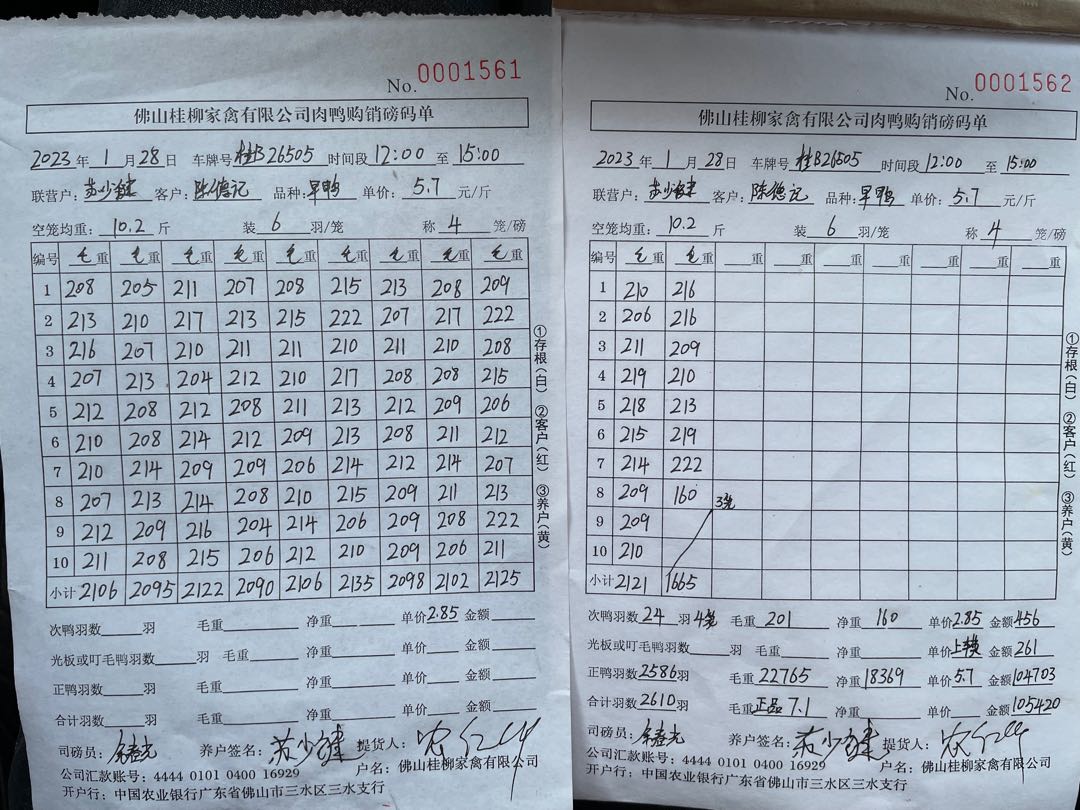 No. 0001561
佛山桂柳家禽有限公司肉鸭购销磅码单
2023年1月28日 车牌号桂B26505 时间段12:00至15:00
联营户:苏少健 客户:陈德记 品种:旱鸭 单价:5.7元/斤
空笼均重:10.2斤 装6羽/笼 称4笼/磅
编号 毛重 毛重 毛重 毛重 毛重 毛重 毛重 毛重 毛重
1 208 205 211 207 208 215 213 208 209
2 213 210 217 213 215 222 207 217 222
3 216 207 210 211 211 210 211 210 208
4 207 213 204 212 210 217 208 208 215
5 212 208 212 208 211 213 212 209 206
6 210 208 214 212 209 213 208 211 212
7 210 214 209 209 206 214 212 214 207
8 207 213 214 208 210 215 209 211 213
9 212 209 216 204 214 206 209 208 222
10 211 208 215 206 212 210 209 206 211
小计 2106 2095 2122 2090 2106 2135 2098 2102 2125
次鸭羽数 羽 毛重 净重 单价2.85 金额
光板或叮毛鸭羽数 羽 毛重 净重 单价 金额
正鸭羽数 羽 毛重 净重 单价 金额
合计羽数 羽 毛重 净重 单价 金额
司磅员: 养户签名:苏少健 提货人:
公司汇款账号:4444 0101 0400 16929 户名:佛山桂柳家禽有限公司
开户行:中国农业银行广东省佛山市三水区三水支行
①存根(白) ②客户(红) ③养户(黄)
No. 0001562
佛山桂柳家禽有限公司肉鸭购销磅码单
2023年1月28日 车牌号桂B26505 时间段12:00至15:00
联营户:苏少健 客户:陈德记 品种:旱鸭 单价:5.7元/斤
空笼均重:10.2斤 装6羽/笼 称4笼/磅
编号 毛重 毛重 重 重 重 重 重 重 重
1 210 216
2 206 216
3 211 209
4 219 210
5 218 213
6 215 219
7 214 222
8 209 160 3笼
9 209
10 210
小计 2121 1665
次鸭羽数24羽 4笼 毛重201 净重160 单价2.85 金额456
光板或叮毛鸭羽数 羽 毛重 净重 单价 金额261
正鸭羽数2586羽 毛重22765 净重18369 单价5.7 金额104703
合计羽数2610羽 毛重正品7.1 净重 单价 金额105420
司磅员: 养户签名:苏少健 提货人:
公司汇款账号:4444 0101 0400 16929 户名:佛山桂柳家禽有限公司
开户行:中国农业银行广东省佛山市三水区三水支行
①存根(白) ②客户(红) ③养户(黄)